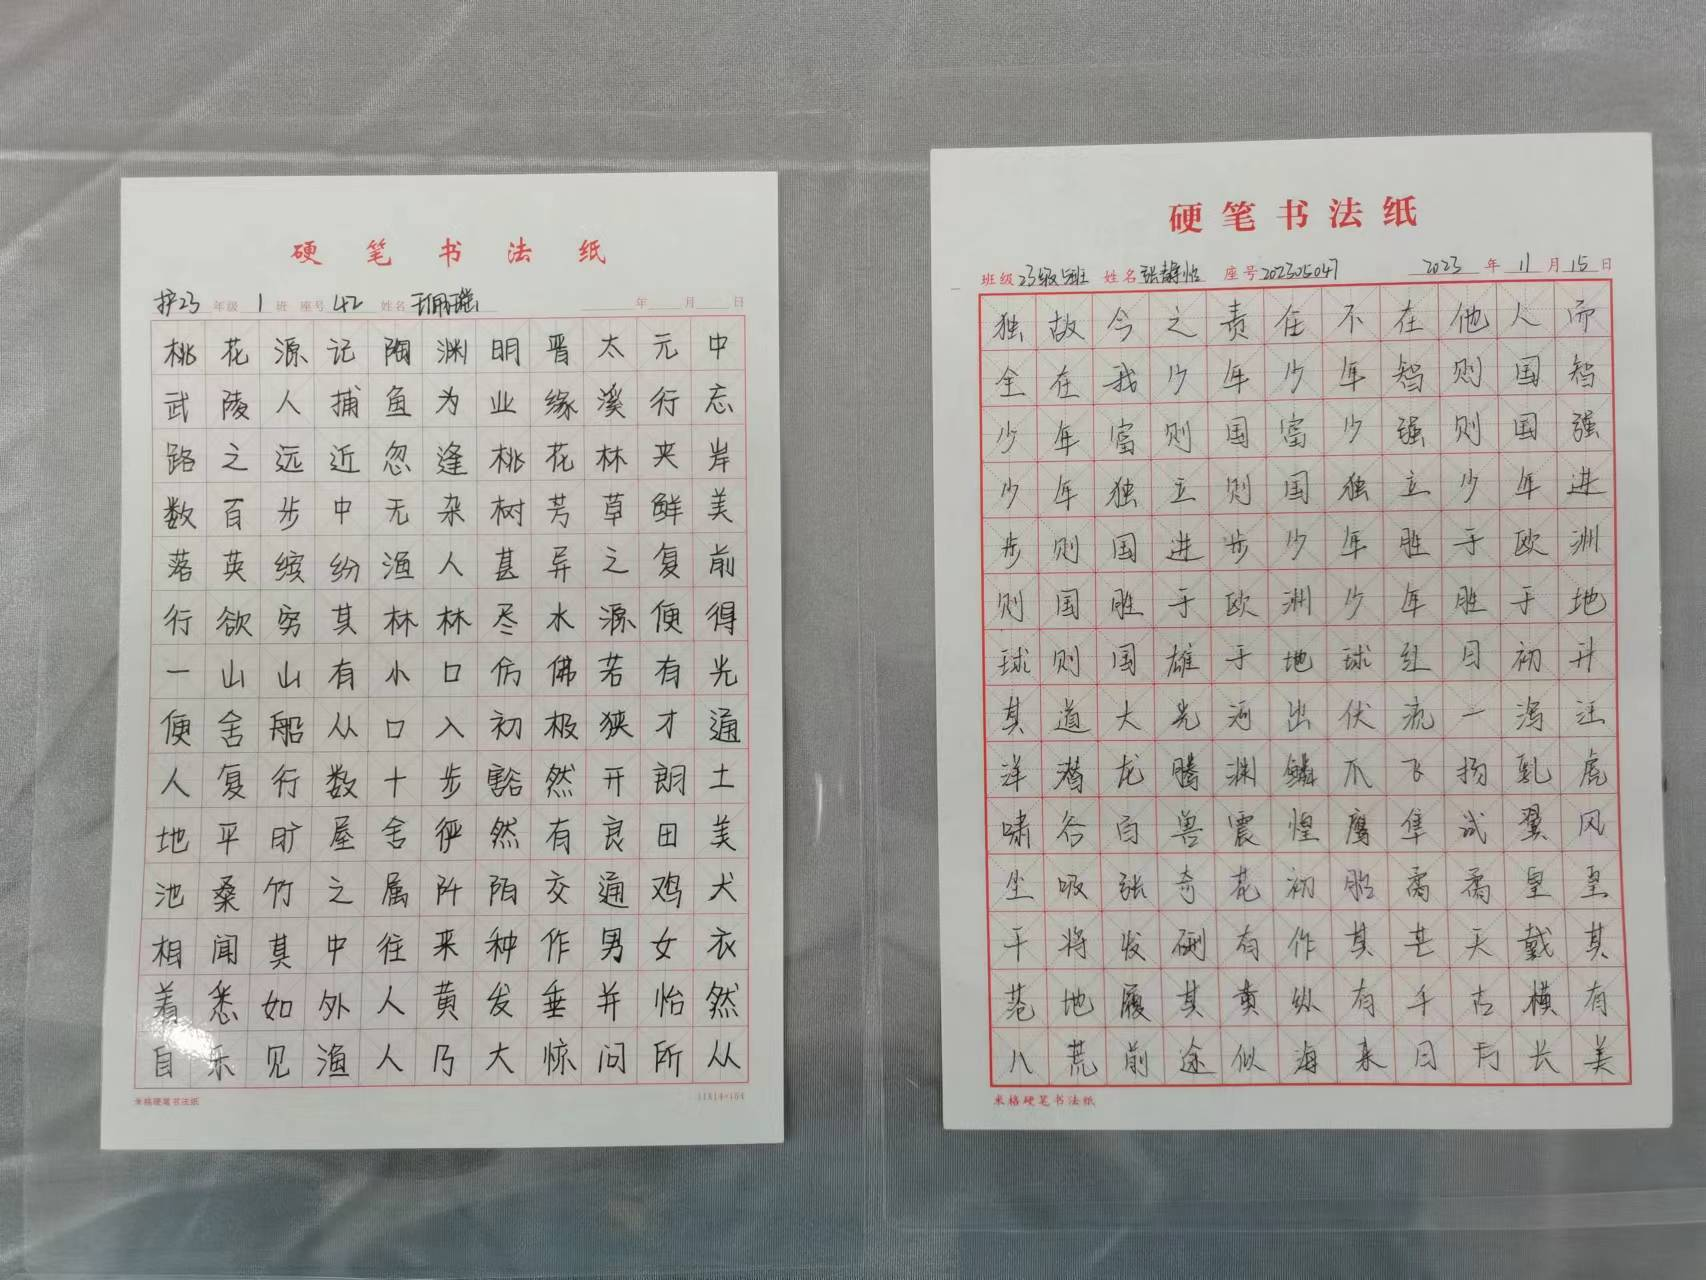 硬笔书法纸
护23年级1班 座号42 姓名 年 月 日
桃花源记陶渊明晋太元中
武陵人捕鱼为业缘溪行忘
路之远近忽逢桃花林夹岸
数百步中无杂树芳草鲜美
落英缤纷渔人甚异之复前
行欲穷其林林尽水源便得
一山山有小口仿佛若有光
便舍船从口入初极狭才通
人复行数十步豁然开朗土
地平旷屋舍俨然有良田美
池桑竹之属阡陌交通鸡犬
相闻其中往来种作男女衣
着悉如外人黄发垂并怡然
自乐见渔人乃大惊问所从
米格硬笔书法纸 11X14=154
硬笔书法纸
班级23级5班 姓名张静怡 座号202305047 2023年11月15日
独故今之责任不在他人而
全在我少年少年智则国智
少年富则国富少强则国强
少年独立则国独立少年进
步则国进步少年胜于欧洲
则国胜于欧洲少年胜于地
球则国雄于地球红日初升
其道大光河出伏流一泻汪
洋潜龙腾渊鳞爪飞扬乳虎
啸谷百兽震惶鹰隼试翼风
尘吸张奇花初胎矞矞皇皇
干将发硎有作其芒天戴其
苍地履其黄纵有千古横有
八荒前途似海来日方长美
米格硬笔书法纸